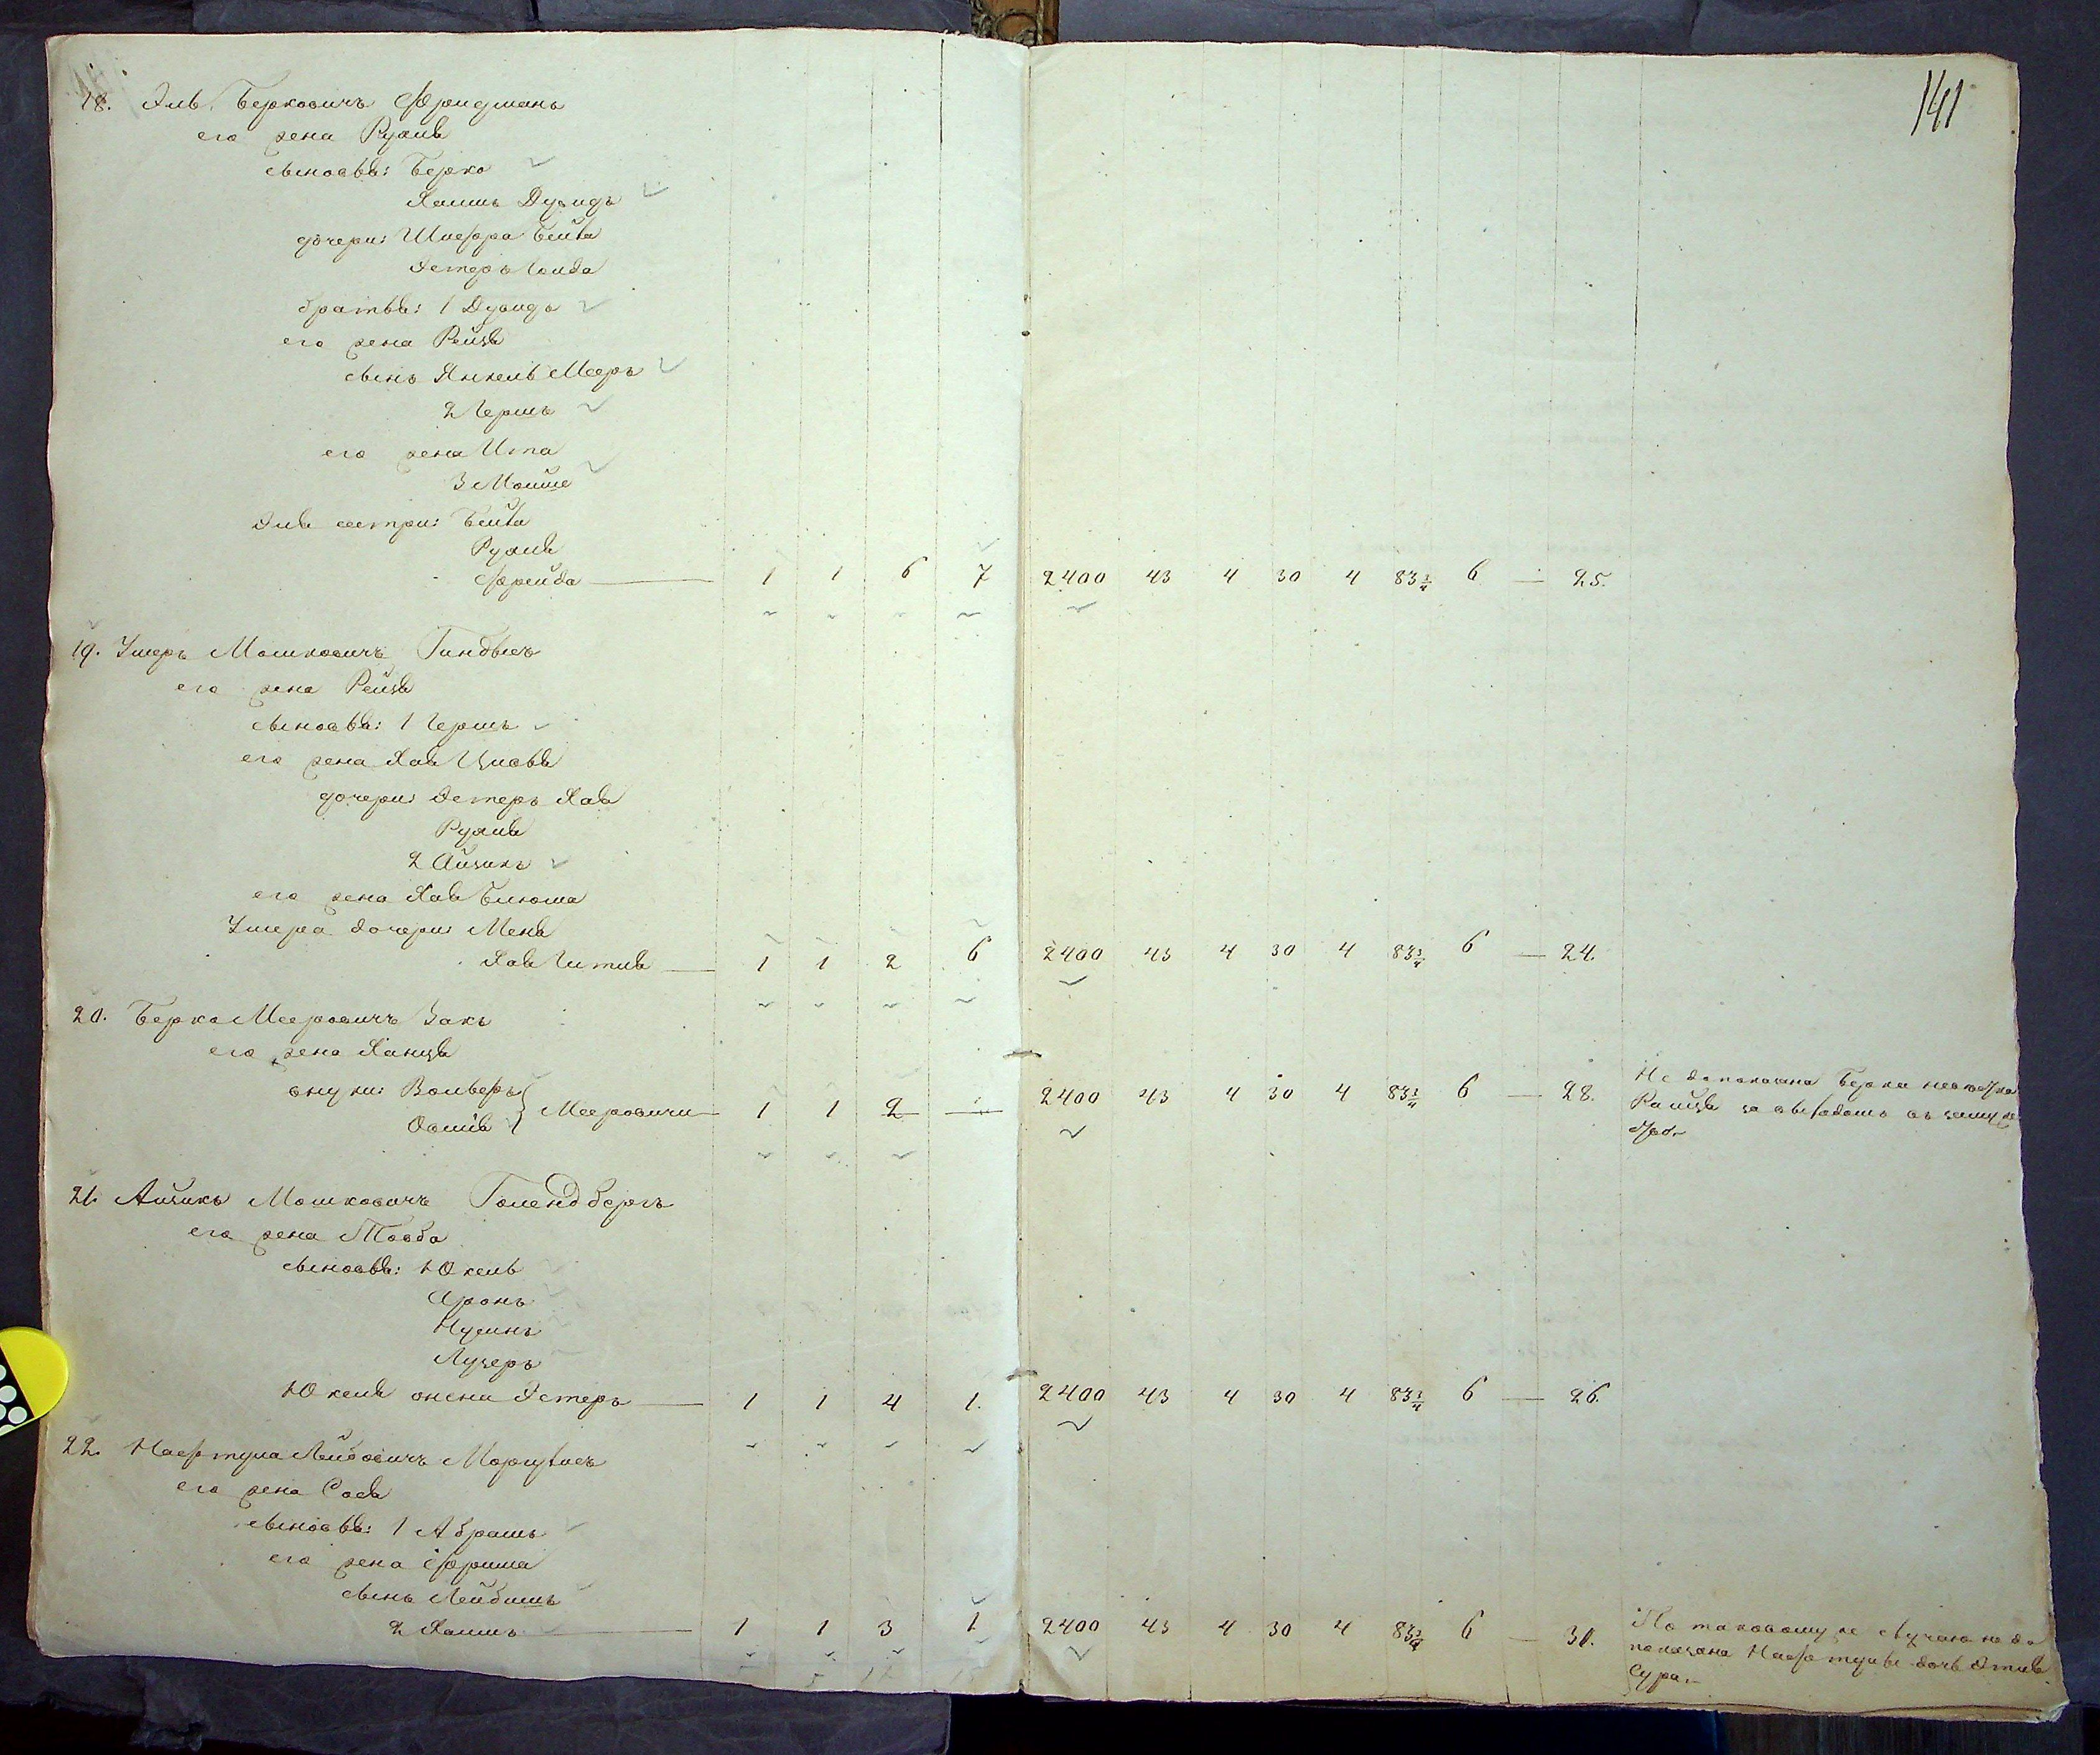 141
18. Эль Берковичъ Фридманъ
его жена Рухля
сыновья: Берко
Хаимъ Дувидъ
дочери: Шифра Бейла
Эстеръ Гольда
братья: 1 Дувидъ
его жена Рейзя
сынъ Янкель Мееръ
2 Гершъ
его жена Ита
3 Мошше
Эля сестри: Бейла
Рухля
Фрейда — 1 1 6 7 2400 43 4 30 4 83¾ 6 — 25.
19. Ушеръ Мошковичъ
его жена Рейзя
сыновья: 1 Гершъ
его жена Хая Цивья
дочери: Эстеръ Хая
Рухля
2 Айзикъ
его жена Хая Блюма
Ушера дочери: Меня
Хая Гитля — 1 1 2 6 2400 43 4 30 4 83¾ 6 — 24.
20. Берко Мееровичъ Закъ
его жена Ханця
внуки: Вольфъ
Мееровичи — 1 1 2 — 2400 43 4 30 4 83¾ 6 — 28.
Не допоказана Берки невѣстка
Раизя за выѣздомъ въ
21. Айзикъ Мошковичъ Гольендбергъ
его жена Товба
сыновья: Юкель
Аронъ
Нусинъ
Лузеръ
Юкеля жена Эстеръ — 1 1 4 1. 2400 43 4 30 4 83¾ 6 — 26.
22. Нафтула Лейбовичъ
его жена Сося
сыновья: 1 Абрамъ
его жена Фрима
сынъ Лейбишъ
2 Хаимъ — 1 1 3 1 2400 43 4 30 4 83¾ 6 — 30.
По таковому же случаю не до
показана Нафтулы дочь Этля
Сура.